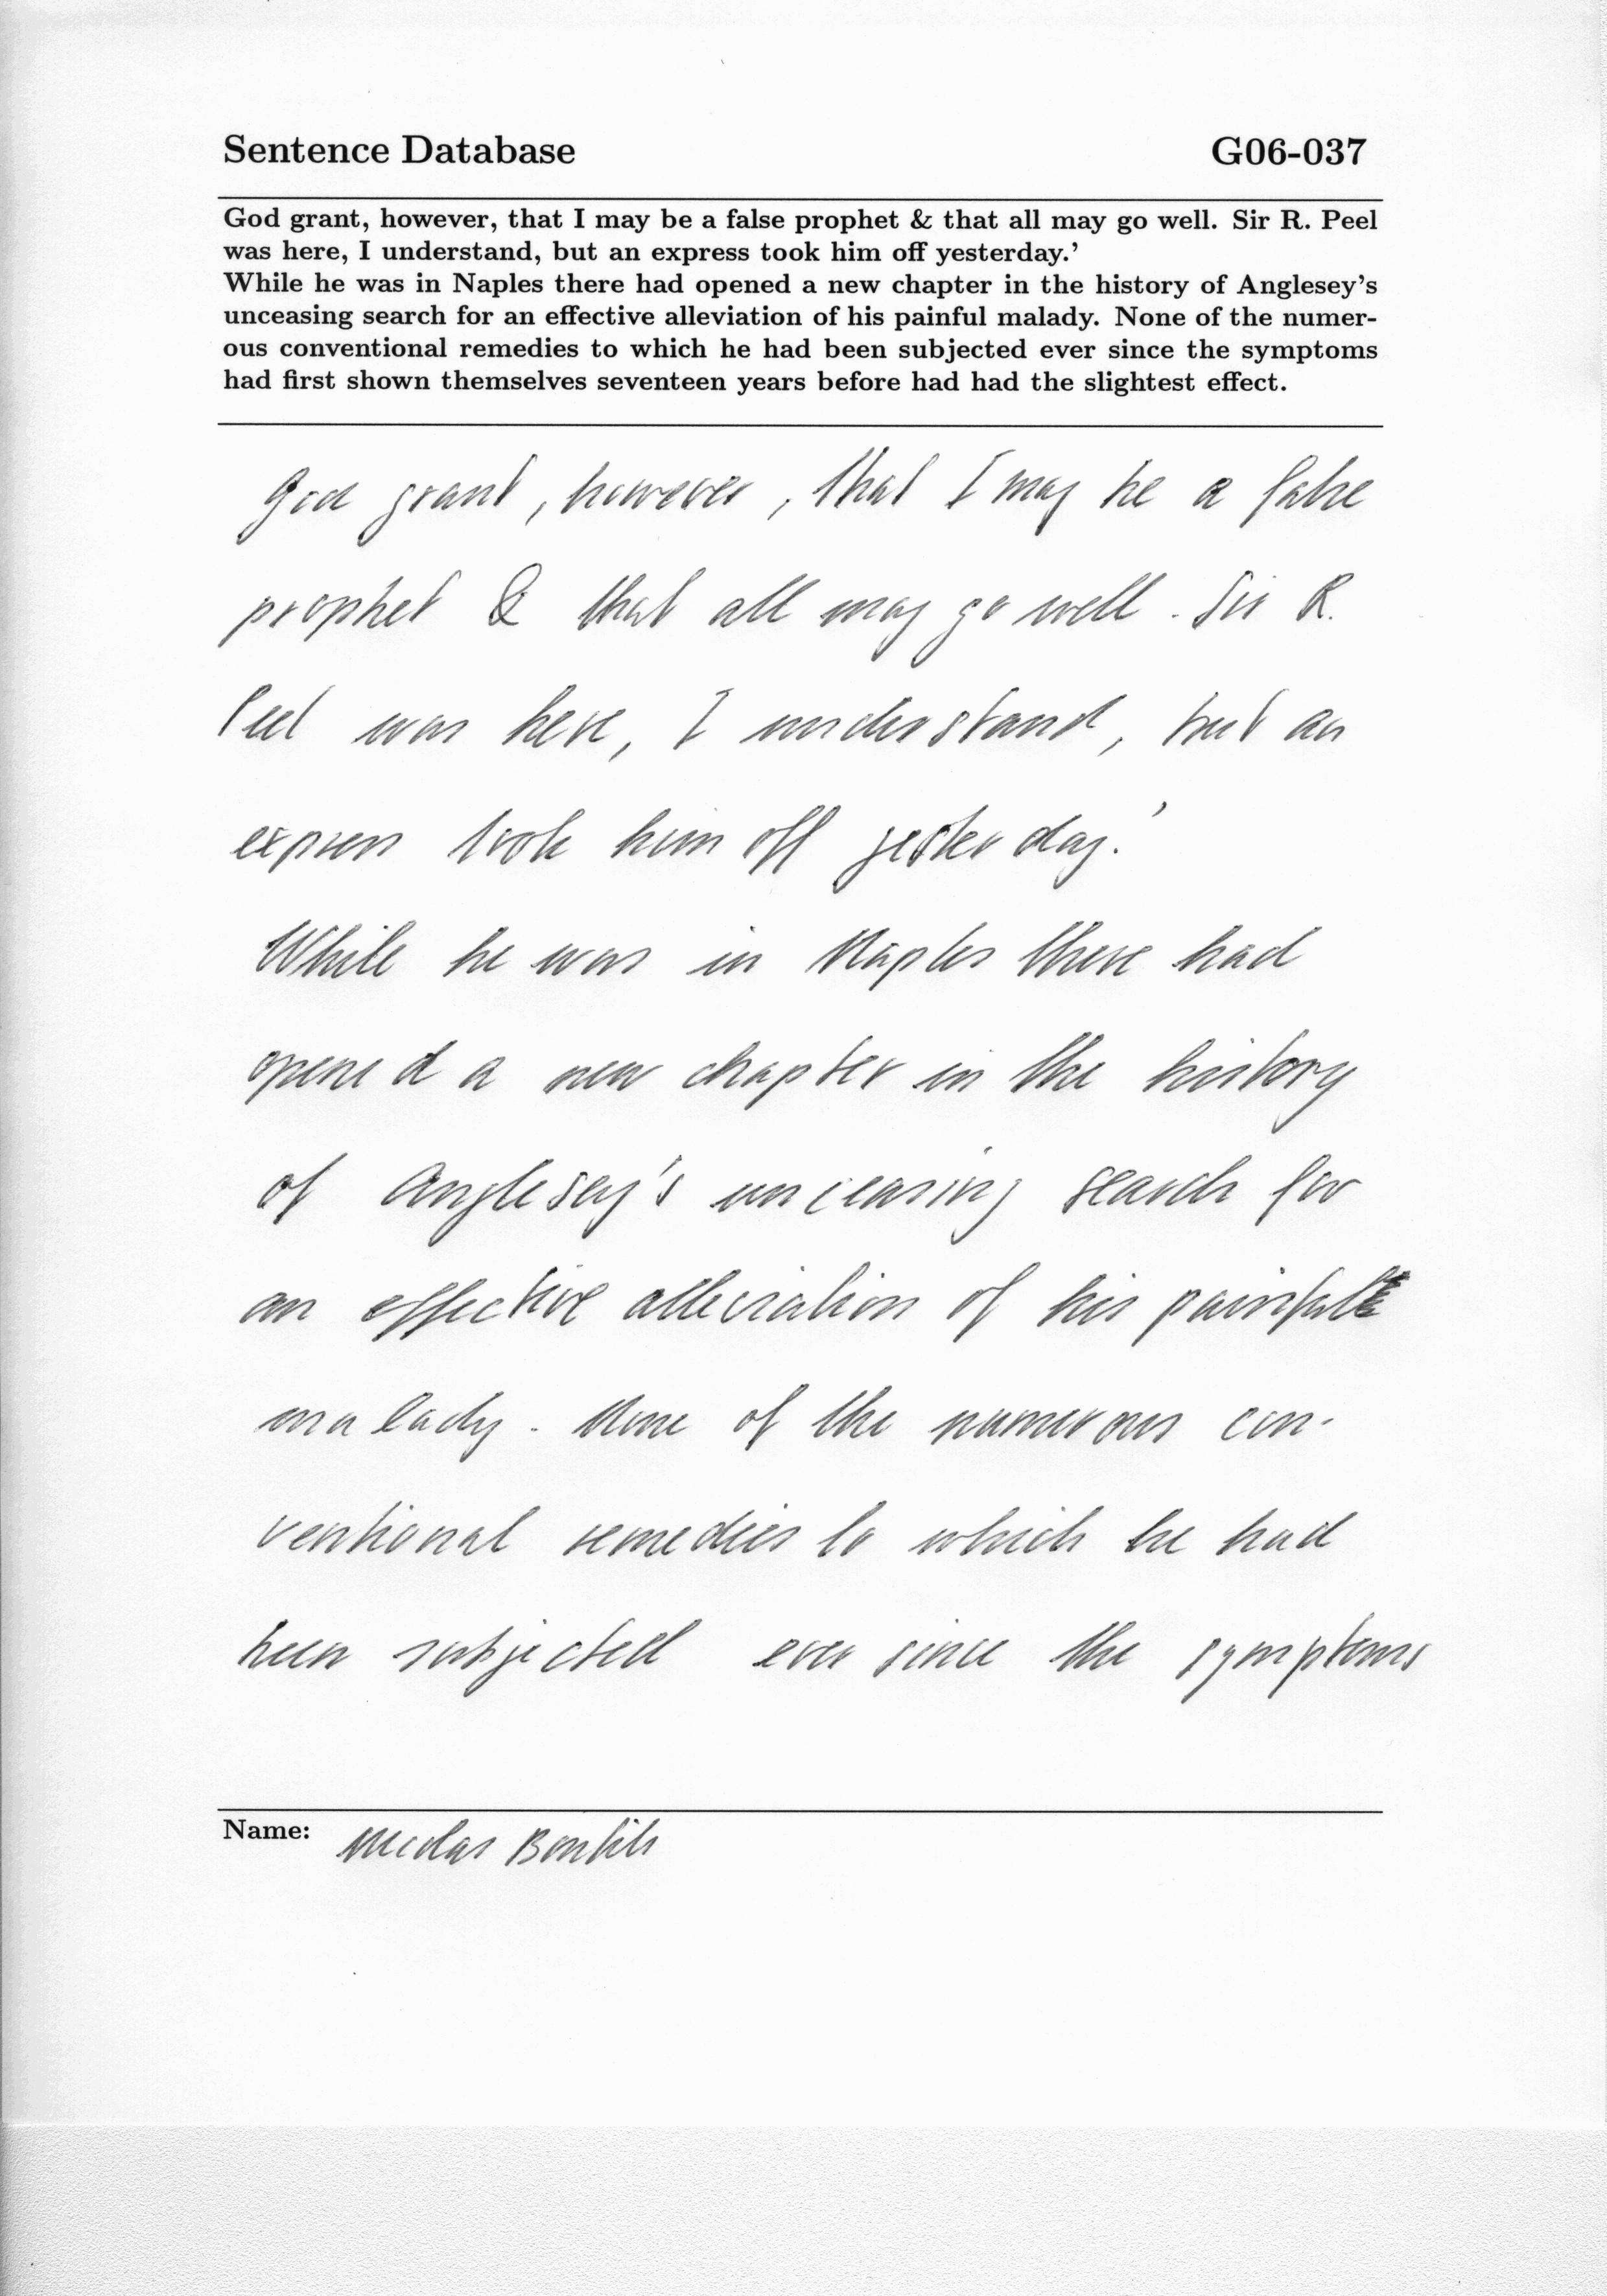 Sentence Database G06-037
God grant, however, that I may be a false prophet & that all may go well. Sir R. Peel
was here, I understand, but an express took him off yesterday.'
While he was in Naples there had opened a new chapter in the history of Anglesey's
unceasing search for an effective alleviation of his painful malady. None of the numer-
ous conventional remedies to which he had been subjected ever since the symptoms
had first shown themselves seventeen years before had had the slightest effect.
God grant, however, that I may be a false
prophet & that all may go well. Sir R.
Peel was here, I understand, but an
express took him off yesterday.'
While he was in Naples there had
opened a new chapter in the history
of Anglesey's unceasing search for
an effective alleviation of his painful
malady. None of the numerous con-
ventional remedies to which he had
been subjected ever since the symptoms
Name: Nicolas